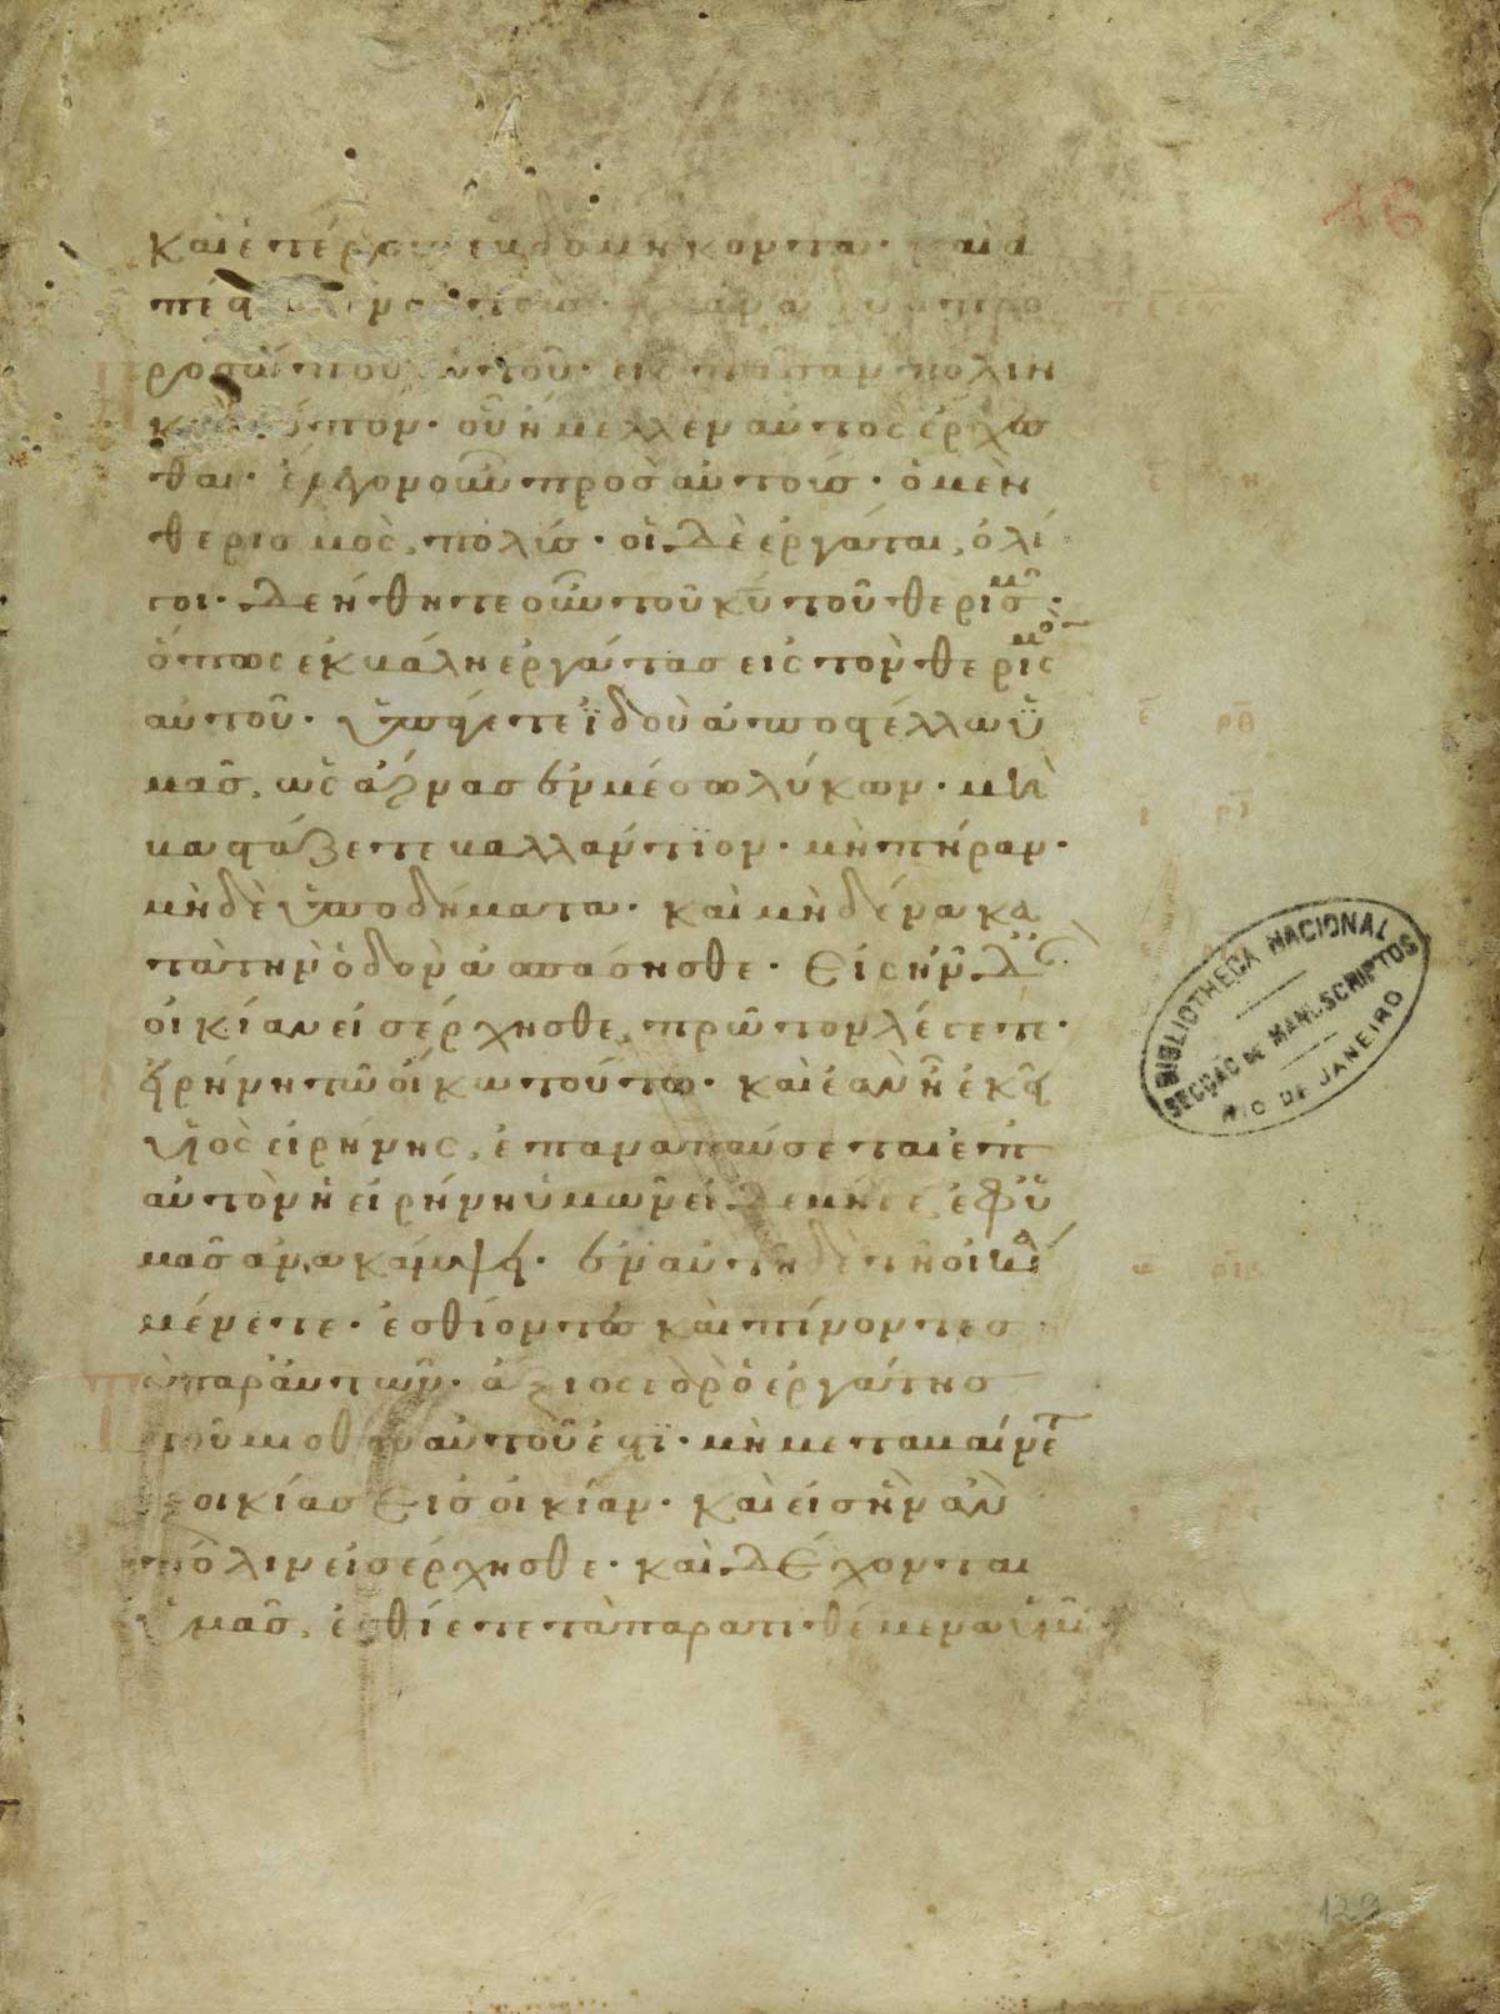 καὶ ἑτέρους ἑβδομήκοντα· καὶ ἀ
ρόσώπου αὐτοῦ· εἰς πᾶσαν πόλιν
τόπον· οὗ ἤμελλεν αὐτὸς ἔρχεσ
θαι· ἔλεγον οὖν πρὸς αὐτούς· ὁ μὲν
θερισμὸς, πολύς· οἱ δὲ ἐργάται, ὀλί
γοι· δεήθητε οὖν τοῦ κυ τοῦ θερισμοῦ·
ὅπως ἐκβάλη ἐργάτας εἰς τὸν θερισμὸν
αὐτοῦ· ὑπάγετε ϊδοὺ ἀποστέλλω ϋ
μᾶς, ὡς ἄρνας ἐν μέσω λύκων· μὴ
βαστάζετε βαλλάντϊον· μὴ πήραν·
μὴδὲ ὑποδήματα· καὶ μὴδένα κα
τὰ τὴν ὁδὸν ἀσπάσησθε· Εἰς ἣν δ
οἰκίαν εἰσέρχησθε, πρῶτον λέγετε·
εἰρήνη τῶ οἴκω τούτω· καὶ ἐὰν ἦ ἐκεῖ
υἱὸς εἰρήνης, ἐπαναπαύσεται ἐπ
αὐτὸν ἡ εἰρήνη ὑμῶν εἰ δὲ μήγε ἐφ ϋ
μᾶς ἀνακάμψει· ἐν αὐτῆ δὲ τῆ οἰκία
μένετε· ἐσθίοντες καὶ πίνοντες
παρ αὐτῶν· ἄξιος γὰρ ὁ ἐργάτης
τοῦ μισθοῦ αὐτοῦ ἐστϊ· μὴ μεταβαίνετ
οἰκίας εἰς οἰκίαν· καὶ εἰς ἣν ἂν
πόλιν εἰσέρχησθε· καὶ δέχονται
ὑμᾶς, ἐσθίετε τὰ παρατιθέμενα ὑμῖν
BIBLIOTHECA NACIONAL
SECÇÃO DE MANUSCRIPTOS
RIO DE JANEIRO
123